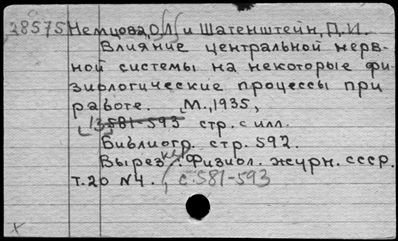 28575 Немцова, О.Л. и Шатенштейн, Д.И.
Влияние центральной нерв-
ной системы на некоторые фи-
зиологические процессы при
работе. М., 1935,
13 581-593 стр. с илл.
Библиогр. стр. 592.
Вырез. из: Физиол. журн. ссср.
т. 20 N4. с. 581-593